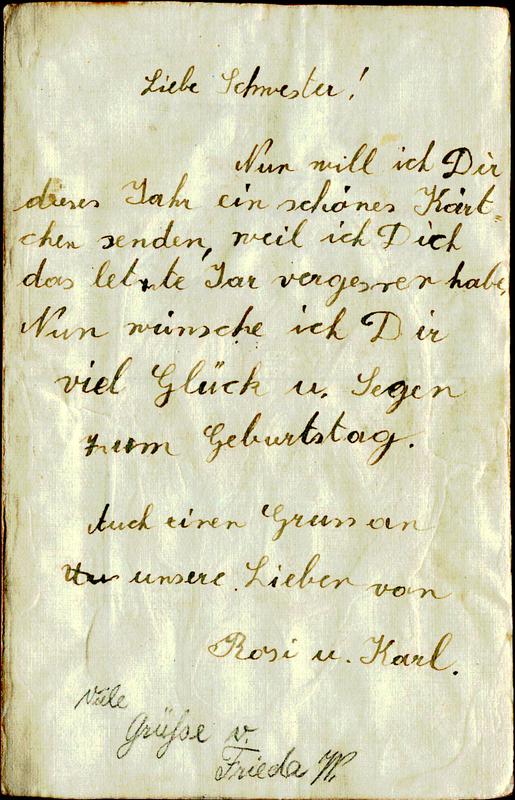 Liebe Schwester!
Nun will ich Dir
dieses Jahr ein schönes Kärt-
chen senden, weil ich Dich
das letzte Jar vergessen habe,
Nun wünsche ich Dir
viel Glück u. Segen
zum Geburtstag.
Auch einen Gruss an
unsere Lieben von
Rosi u. Karl.
Viele
Grüsse v.
Frieda W.